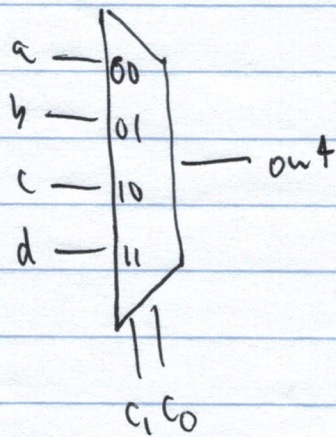 a 00
b 01
c 10
d 11
out
C1 C0